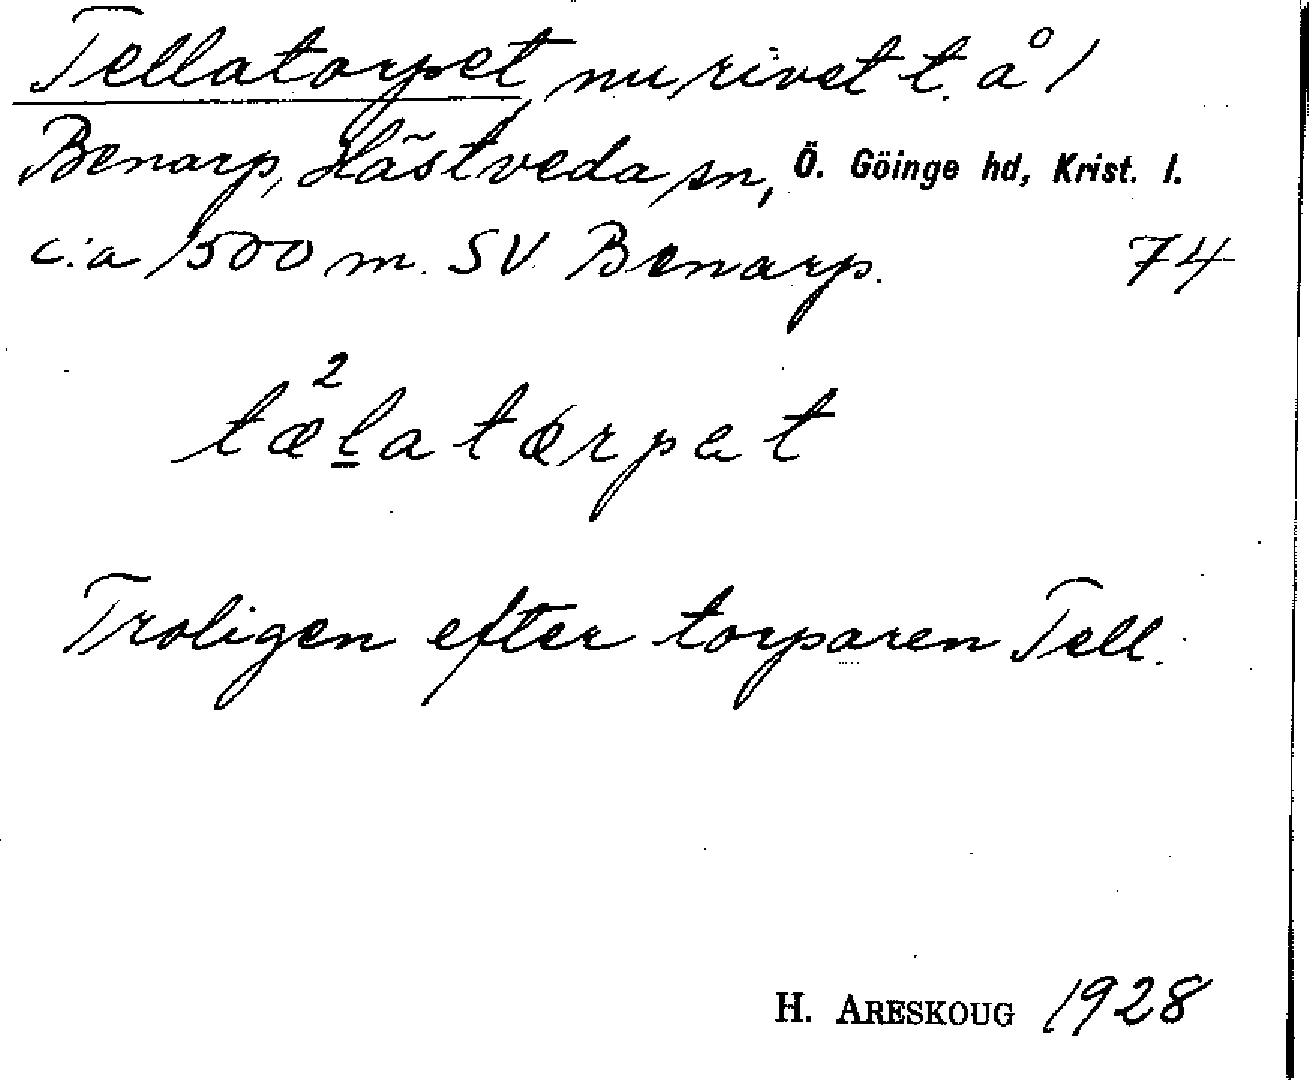 Tellatorpet, nu rivet t. å 1
Benarp, Hästveda sn, Ö. Göinge hd, Krist. l.
c:a 1500 m. SV. Benarp. 74
2
tælatørpat
Troligen efter torparen Tell.
H. ARESKOUG 1928